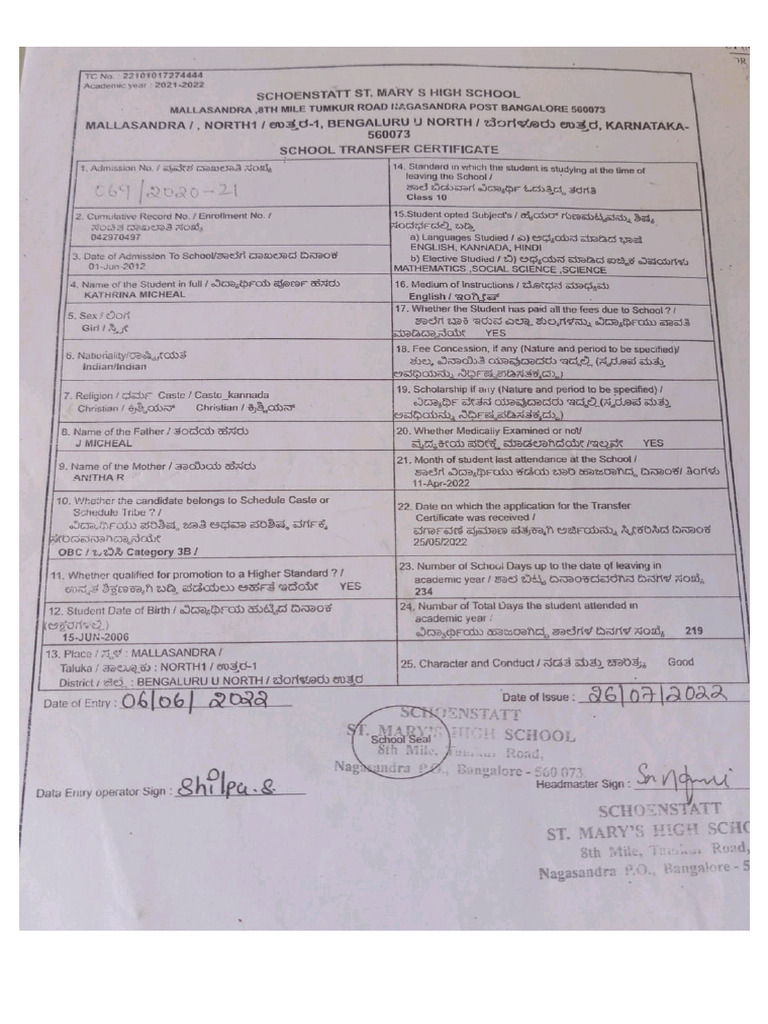 TC No. : 22101017274444
Academic year : 2021-2022
SCHOENSTATT ST. MARY S HIGH SCHOOL
MALLASANDRA ,8TH MILE TUMKUR ROAD NAGASANDRA POST BANGALORE 560073
MALLASANDRA / , NORTH1 / ಉತ್ತರ-1, BENGALURU U NORTH / ಬೆಂಗಳೂರು ಉತ್ತರ, KARNATAKA-
560073
SCHOOL TRANSFER CERTIFICATE
1. Admission No. / ಪ್ರವೇಶ ದಾಖಲಾತಿ ಸಂಖ್ಯೆ
069/2020-21
2. Cumulative Record No. / Enrollment No. /
ಸಂಚಿತ ದಾಖಲಾತಿ ಸಂಖ್ಯೆ
042970497
3. Date of Admission To School/ಶಾಲೆಗೆ ದಾಖಲಾದ ದಿನಾಂಕ
01-Jun-2012
4. Name of the Student in full / ವಿದ್ಯಾರ್ಥಿಯ ಪೂರ್ಣ ಹೆಸರು
KATHRINA MICHEAL
5. Sex / ಲಿಂಗ
Girl / ಸ್ತ್ರೀ
6. Nationality/ರಾಷ್ಟ್ರೀಯತೆ
Indian/Indian
7. Religion / ಧರ್ಮ Caste / Caste_kannada
Christian / ಕ್ರಿಶ್ಚಿಯನ್ Christian / ಕ್ರಿಶ್ಚಿಯನ್
8. Name of the Father / ತಂದೆಯ ಹೆಸರು
J MICHEAL
9. Name of the Mother / ತಾಯಿಯ ಹೆಸರು
ANITHA R
10. Whether the candidate belongs to Schedule Caste or
Schedule Tribe ? /
ವಿದ್ಯಾರ್ಥಿಯು ಪರಿಶಿಷ್ಟ ಜಾತಿ ಅಥವಾ ಪರಿಶಿಷ್ಟ ವರ್ಗಕ್ಕೆ
ಸೇರಿದವನಾಗಿದ್ದಾನೆಯೇ
OBC / ಒಬಿಸಿ Category 3B /
11. Whether qualified for promotion to a Higher Standard ? /
ಉನ್ನತ ಶಿಕ್ಷಣಕ್ಕಾಗಿ ಬಡ್ತಿ ಪಡೆಯಲು ಅರ್ಹತೆ ಇದೆಯೇ YES
12. Student Date of Birth / ವಿದ್ಯಾರ್ಥಿಯ ಹುಟ್ಟಿದ ದಿನಾಂಕ
(ಅಕ್ಷರಗಳಲ್ಲಿ)
15-JUN-2006
13. Place / ಸ್ಥಳ : MALLASANDRA /
Taluka / ತಾಲ್ಲೂಕು : NORTH1 / ಉತ್ತರ-1
District / ಜಿಲ್ಲೆ : BENGALURU U NORTH / ಬೆಂಗಳೂರು ಉತ್ತರ
14. Standard in which the student is studying at the time of
leaving the School /
ಶಾಲೆ ಬಿಡುವಾಗ ವಿದ್ಯಾರ್ಥಿ ಓದುತ್ತಿದ್ದ ತರಗತಿ
Class 10
15.Student opted Subject's / ಹೈಯರ್ ಗುಣಮಟ್ಟವನ್ನು ಶಿಷ್ಯ
ಸಂದರ್ಭದಲ್ಲಿ ಬಡ್ತಿ
a) Languages Studied / ಎ) ಅಧ್ಯಯನ ಮಾಡಿದ ಭಾಷೆ
ENGLISH, KANNADA, HINDI
b) Elective Studied / ಬಿ) ಅಧ್ಯಯನ ಮಾಡಿದ ಐಚ್ಛಿಕ ವಿಷಯಗಳು
MATHEMATICS ,SOCIAL SCIENCE ,SCIENCE
16. Medium of Instructions / ಬೋಧನ ಮಾಧ್ಯಮ
English / ಇಂಗ್ಲೀಷ್
17. Whether the Student has paid all the fees due to School ? /
ಶಾಲೆಗೆ ಬಾಕಿ ಇರುವ ಎಲ್ಲಾ ಶುಲ್ಕಗಳನ್ನು ವಿದ್ಯಾರ್ಥಿಯು ಪಾವತಿ
ಮಾಡಿದ್ದಾನೆಯೇ YES
18. Fee Concession, if any (Nature and period to be specified)/
ಶುಲ್ಕ ವಿನಾಯಿತಿ ಯಾವುದಾದರು ಇದ್ದಲ್ಲಿ (ಸ್ವರೂಪ ಮತ್ತು
ಅವಧಿಯನ್ನು ನಿರ್ಧಿಷ್ಟಪಡಿಸತಕ್ಕದ್ದು)
19. Scholarship if any (Nature and period to be specified) /
ವಿದ್ಯಾರ್ಥಿ ವೇತನ ಯಾವುದಾದರು ಇದ್ದಲ್ಲಿ (ಸ್ವರೂಪ ಮತ್ತು
ಅವಧಿಯನ್ನು ನಿರ್ಧಿಷ್ಟಪಡಿಸತಕ್ಕದ್ದು)
20. Whether Medically Examined or not/
ವೈದ್ಯಕೀಯ ಪರೀಕ್ಷೆ ಮಾಡಲಾಗಿದೆಯೇ /ಇಲ್ಲವೇ YES
21. Month of student last attendance at the School /
ಶಾಲೆಗೆ ವಿದ್ಯಾರ್ಥಿಯು ಕಡೆಯ ಬಾರಿ ಹಾಜರಾಗಿದ್ದ ದಿನಾಂಕ/ ತಿಂಗಳು
11-Apr-2022
22. Date on which the application for the Transfer
Certificate was received /
ವರ್ಗಾವಣೆ ಪ್ರಮಾಣ ಪತ್ರಕ್ಕಾಗಿ ಅರ್ಜಿಯನ್ನು ಸ್ವೀಕರಿಸಿದ ದಿನಾಂಕ
25/05/2022
23. Number of School Days up to the date of leaving in
academic year / ಶಾಲೆ ಬಿಟ್ಟ ದಿನಾಂಕದವರೆಗಿನ ದಿನಗಳ ಸಂಖ್ಯೆ
234
24. Number of Total Days the student attended in
academic year /
ವಿದ್ಯಾರ್ಥಿಯು ಹಾಜರಾಗಿದ್ದ ಶಾಲೆಗಳ ದಿನಗಳ ಸಂಖ್ಯೆ 219
25. Character and Conduct / ನಡತೆ ಮತ್ತು ಚಾರಿತ್ರ್ಯ Good
Date of Entry : 06/06/2022
Date of Issue : 26/07/2022
SCHOENSTATT
ST. MARY'S HIGH SCHOOL
School Seal
8th Mile, Tumkur Road,
Nagasandra P.O., Bangalore - 560 073.
Data Entry operator Sign : Shilpa.S.
Headmaster Sign :
SCHOENSTATT
ST. MARY'S HIGH SCHO
8th Mile, Tumkur Road,
Nagasandra P.O., Bangalore - 5